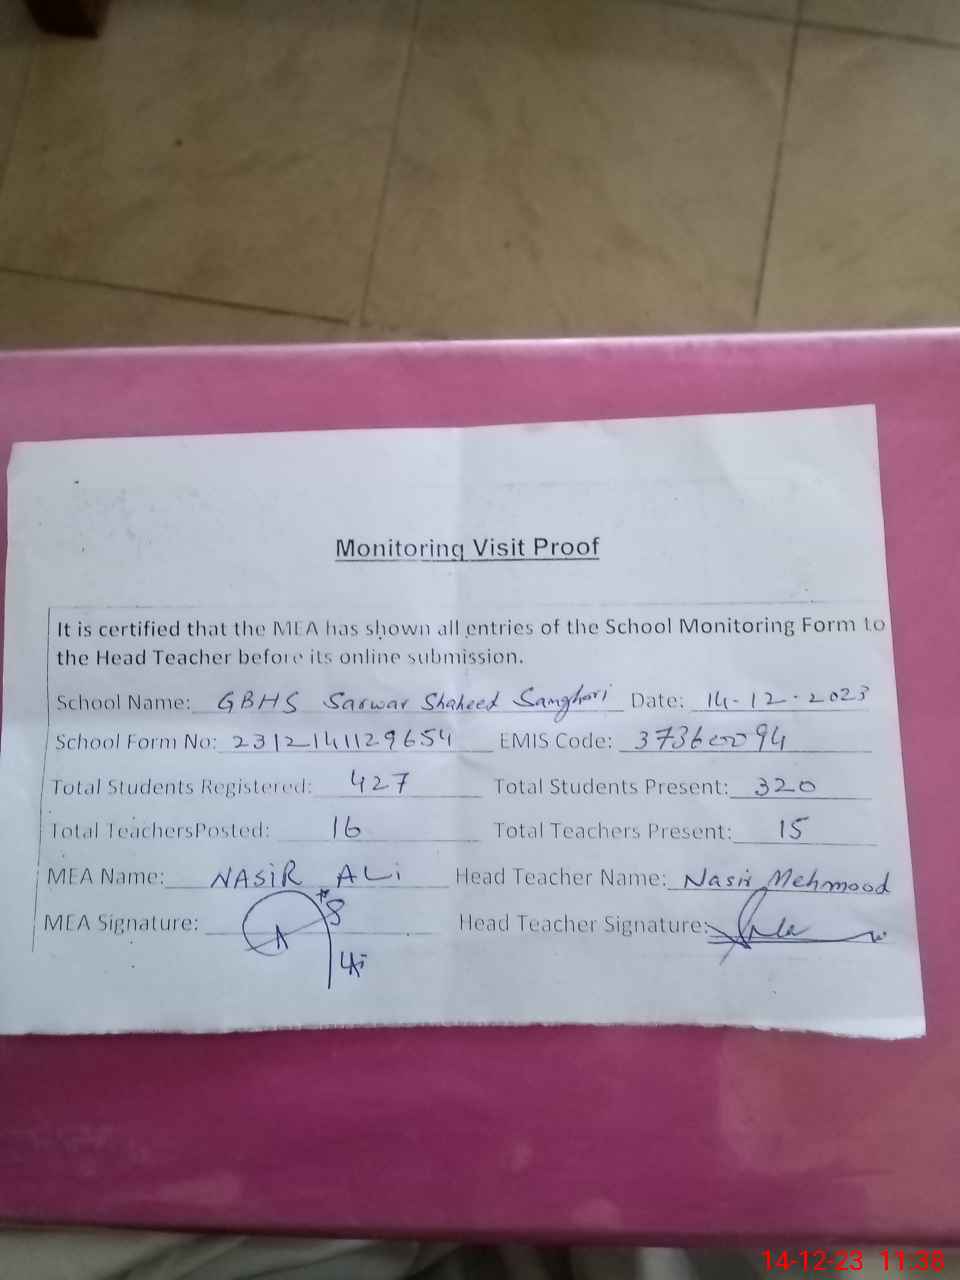 Monitoring Visit Proof
It is certified that the MEA has shown all entries of the School Monitoring Form to
the Head Teacher before its online submission.
School Name: GBHS Sarwar Shaheed Sanghori Date: 14-12-2023
School Form No: 2312141129654 EMIS Code: 37360094
Total Students Registered: 427 Total Students Present: 320
Total TeachersPosted: 16 Total Teachers Present: 15
MEA Name: NASIR ALi Head Teacher Name: Nasir Mehmood
MEA Signature: Head Teacher Signature:
14-12-23 11:38